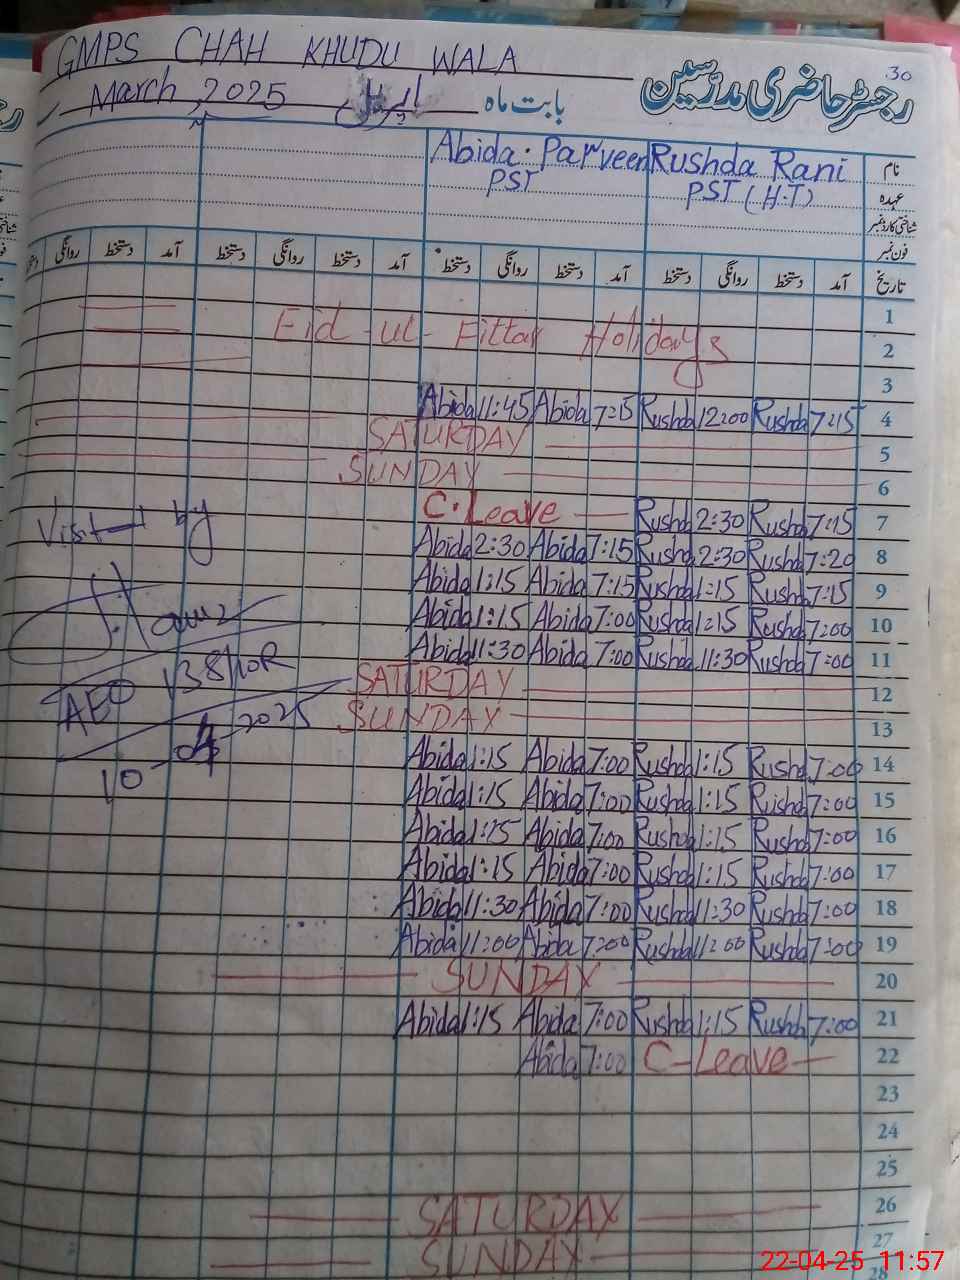 GMPS CHAH KHUDU WALA
30
رجسٹر حاضری مدرسین
March, 2025
بابت ماہ اپریل
نام Rushda Rani Abida. Parveen
عہدہ PST (H.T) PST
شناختی کارڈ نمبر
فون نمبر
تاریخ آمد دستخط روانگی دستخط آمد دستخط روانگی دستخط آمد دستخط روانگی دستخط آمد دستخط روانگی
1
Eid-ul-Fittar Holidays 2
3
Abida 11:45 Abida 7:15 Rushda 12:00 Rushda 7:15 4
SATURDAY 5
SUNDAY 6
C.Leave Rushda 2:30 Rushda 7:15 7
Abida 2:30 Abida 7:15 Rushda 2:30 Rushda 7:20 8
Abida 1:15 Abida 7:15 Rushda 1:15 Rushda 7:15 9
Abida 1:15 Abida 7:00 Rushda 1:15 Rushda 7:00 10
Abida 11:30 Abida 7:00 Rushda 11:30 Rushda 7:00 11
SATURDAY 12
SUNDAY 13
Abida 1:15 Abida 7:00 Rushda 1:15 Rushda 7:00 14
Abida 1:15 Abida 7:00 Rushda 1:15 Rushda 7:00 15
Abida 1:15 Abida 7:00 Rushda 1:15 Rushda 7:00 16
Abida 1:15 Abida 7:00 Rushda 1:15 Rushda 7:00 17
Abida 11:30 Abida 7:00 Rushda 11:30 Rushda 7:00 18
Abida 11:00 Abida 7:00 Rushda 11:00 Rushda 7:00 19
SUNDAY 20
Abida 1:15 Abida 7:00 Rushda 1:15 Rushda 7:00 21
Abida 7:00 C-Leave 22
23
24
25
SATURDAY 26
SUNDAY 27
28
Visited by
AEO 138/10R
10-04-2025
22-04-25 11:57